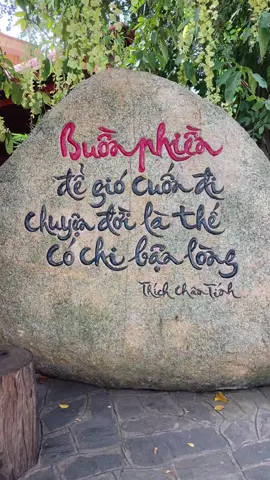 Buồn phiền
để gió cuốn đi
chuyện đời là thế
có chi bận lòng
Thích Chân Tính